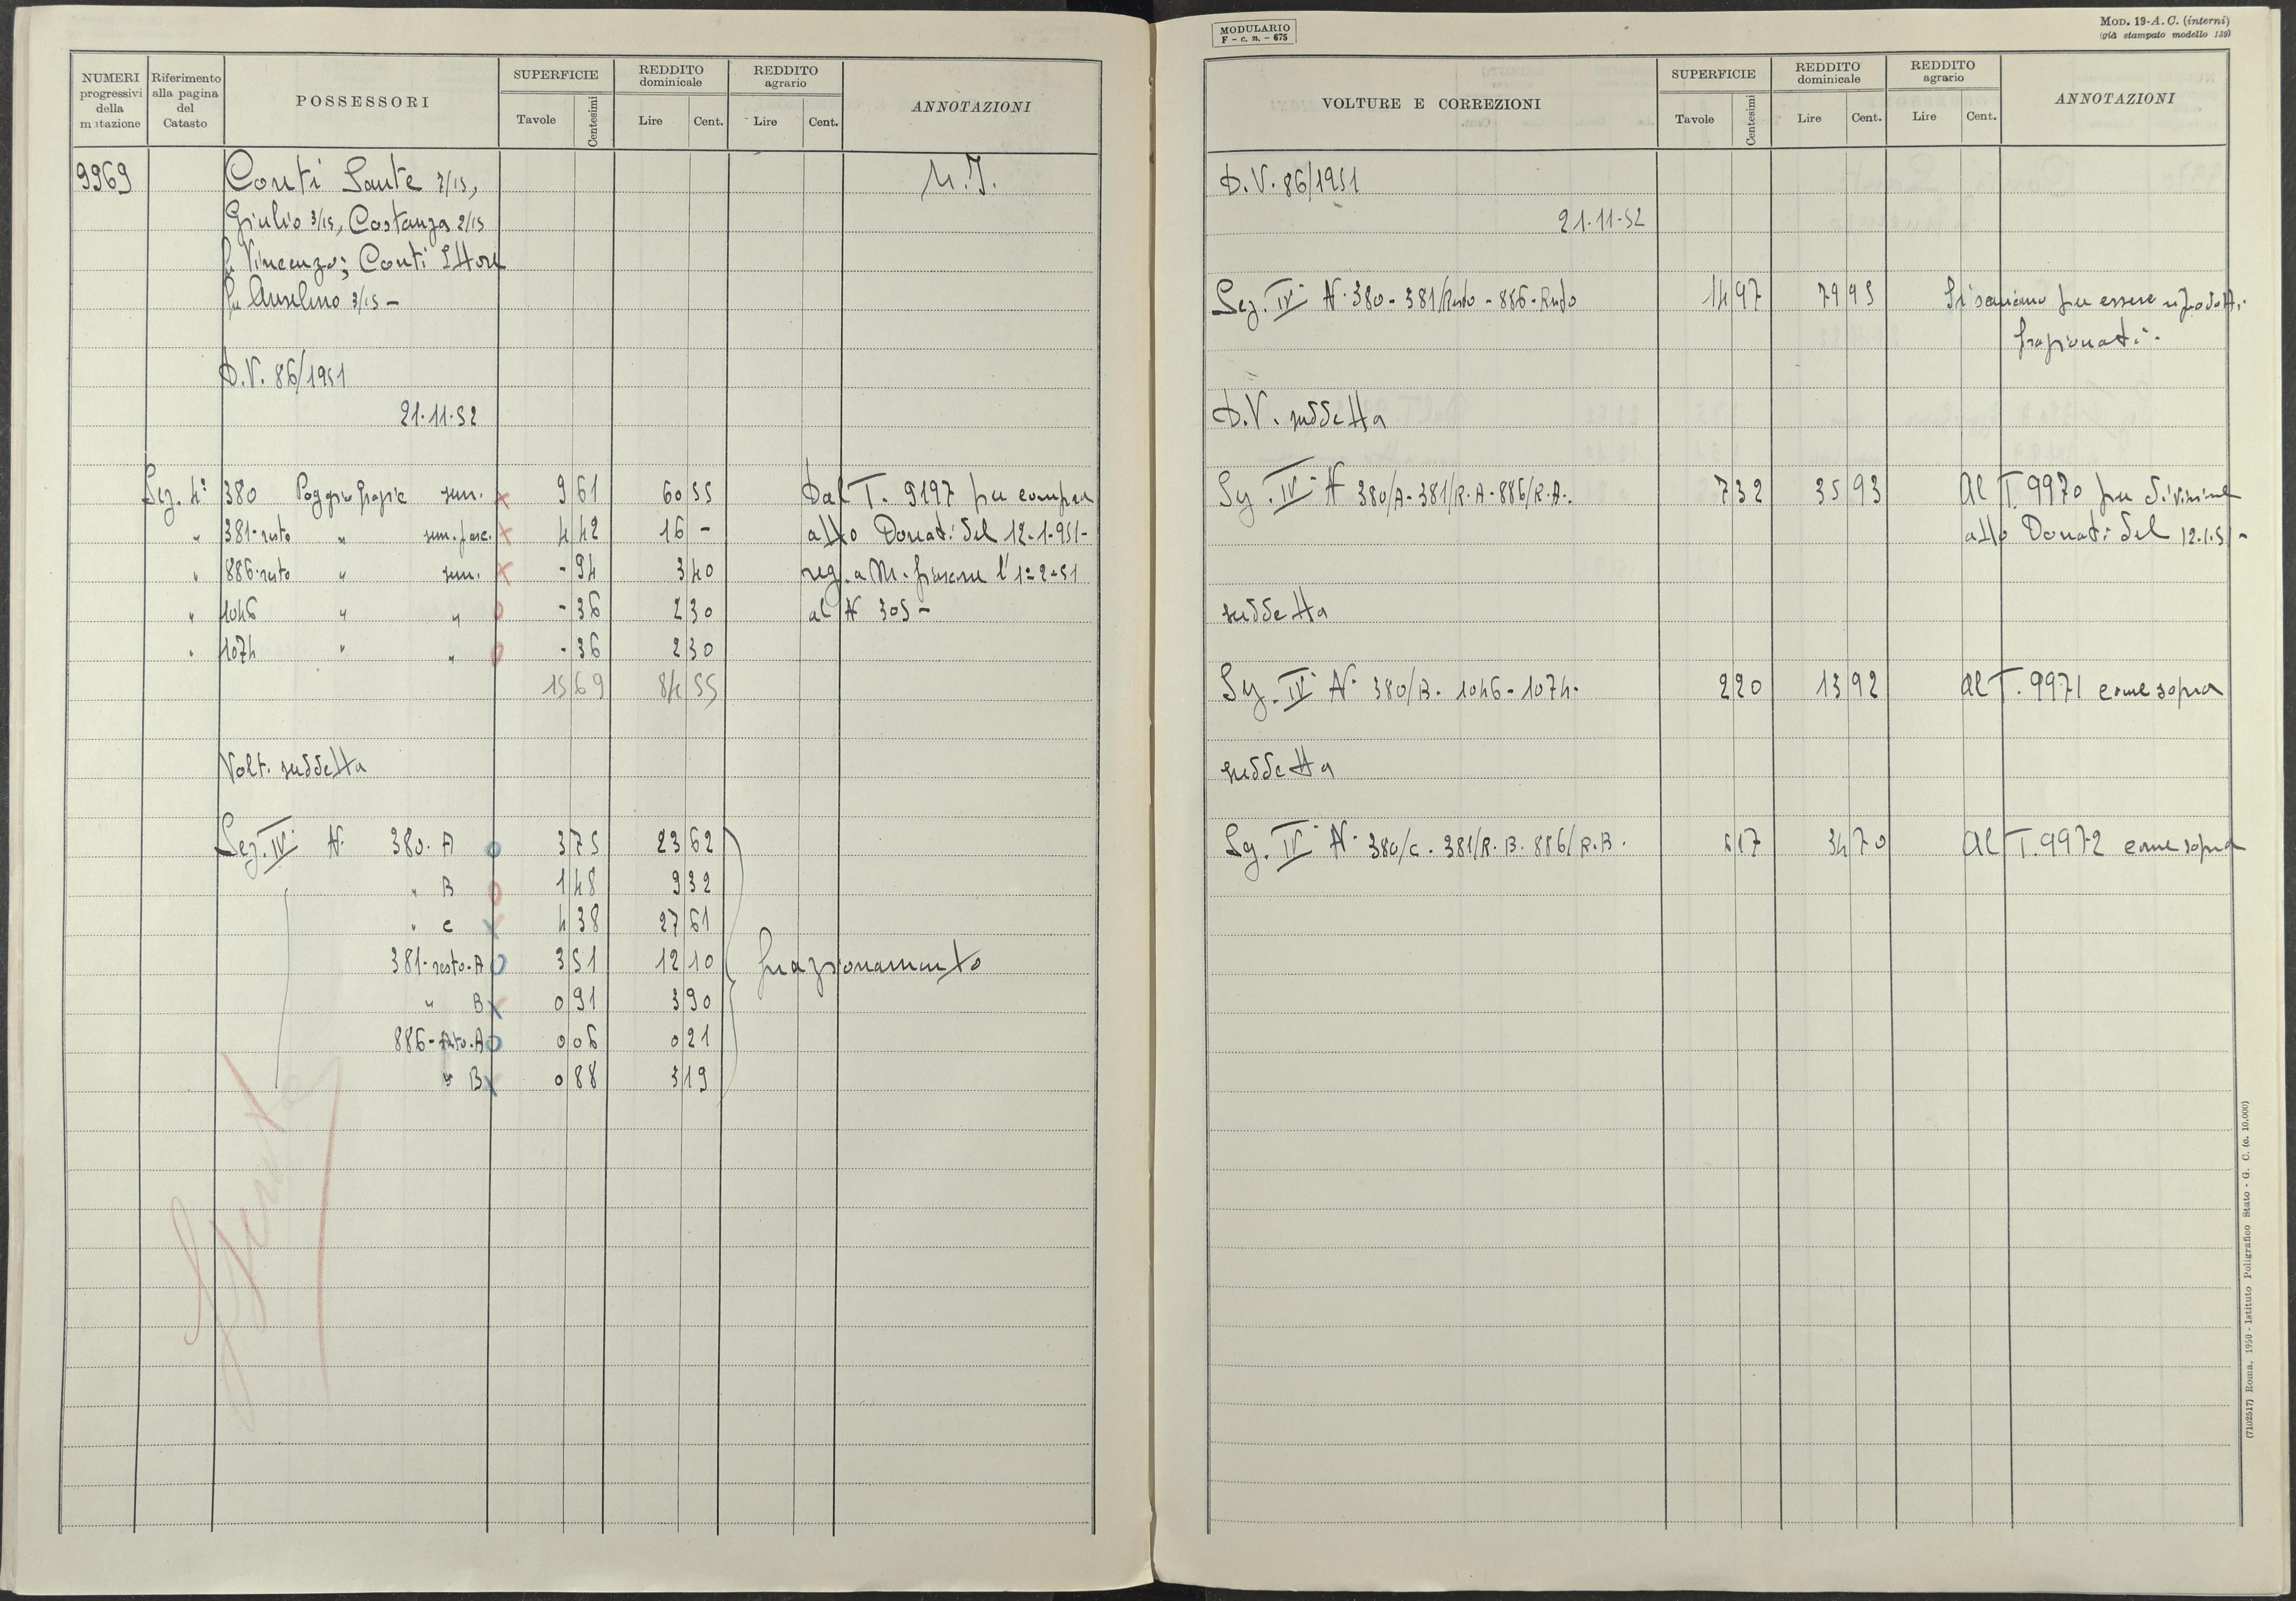 NUMERI progressivi della mutazione
Riferimento alla pagina del Catasto
POSSESSORI
SUPERFICIE
Tavole Centesimi
REDDITO dominicale
Lire Cent.
REDDITO agrario
Lire Cent.
ANNOTAZIONI
9969 Conti Sante 2/15, N.I.
Giulio 3/15, Costanza 2/15
fu Vincenzo; Conti Ettore
fu Anselmo 3/15 -
D.V. 86/1951
21-11-52
Sez. 4ª 380 Poggio Grazie sem. x 9 61 60 55 Dal T. 9197 per compra
" 381-resto " sem. pasc. x 4 42 16 - atto Donati del 12-1-951-
" 886-resto " sem. x - 94 3 40 reg. a M. l'1-2-51
" 1046 " " 0 - 36 2 30 al N 305 -
" 1074 " " 0 - 36 2 30
15 69 84 55
Volt. suddetta
Sez. IVª N. 380. A o 3 75 23 62
" B o 1 48 9 32
" C x 4 38 27 61
381-resto-A o 3 51 12 10 frazionamento
" B x 0 91 3 90
886-resto-A o 0 06 0 21
" B x 0 88 3 19
MODULARIO
F - c. n. - 675
MOD. 19-A. C. (interni)
(già stampato modello 139)
VOLTURE E CORREZIONI
SUPERFICIE
Tavole Centesimi
REDDITO dominicale
Lire Cent.
REDDITO agrario
Lire Cent.
ANNOTAZIONI
D.V. 86/1951
21-11-52
Sez. IVª N. 380 - 381/Resto - 886-Resto 14 97 79 95 Si scaricano per essere riprodotti
frazionati.
D.V. suddetta
Sez. IVª N 380/A - 381/R.A - 886/R.A. 7 32 35 93 Al T. 9970 per divisione
atto Donati del 12.1.51 -
suddetta
Sez. IVª N. 380/B - 1046 - 1074 - 2 20 13 92 Al T. 9971 come sopra
suddetta
Sez. IVª N. 380/C. 381/R.B. 886/R.B. 17 34 70 Al T. 9972 come sopra
(7102517) Roma, 1950 - Istituto Poligrafico Stato - G. C. (c. 10.000)